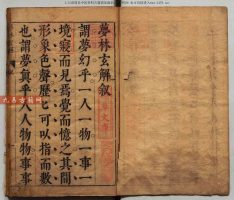 夢林玄解叙
謂夢幻乎一人一物一事一
境寢而見焉覺而憶之其間
形象色聲歷歷可以指而數
也謂夢眞乎人人物物事事
九易古籍网